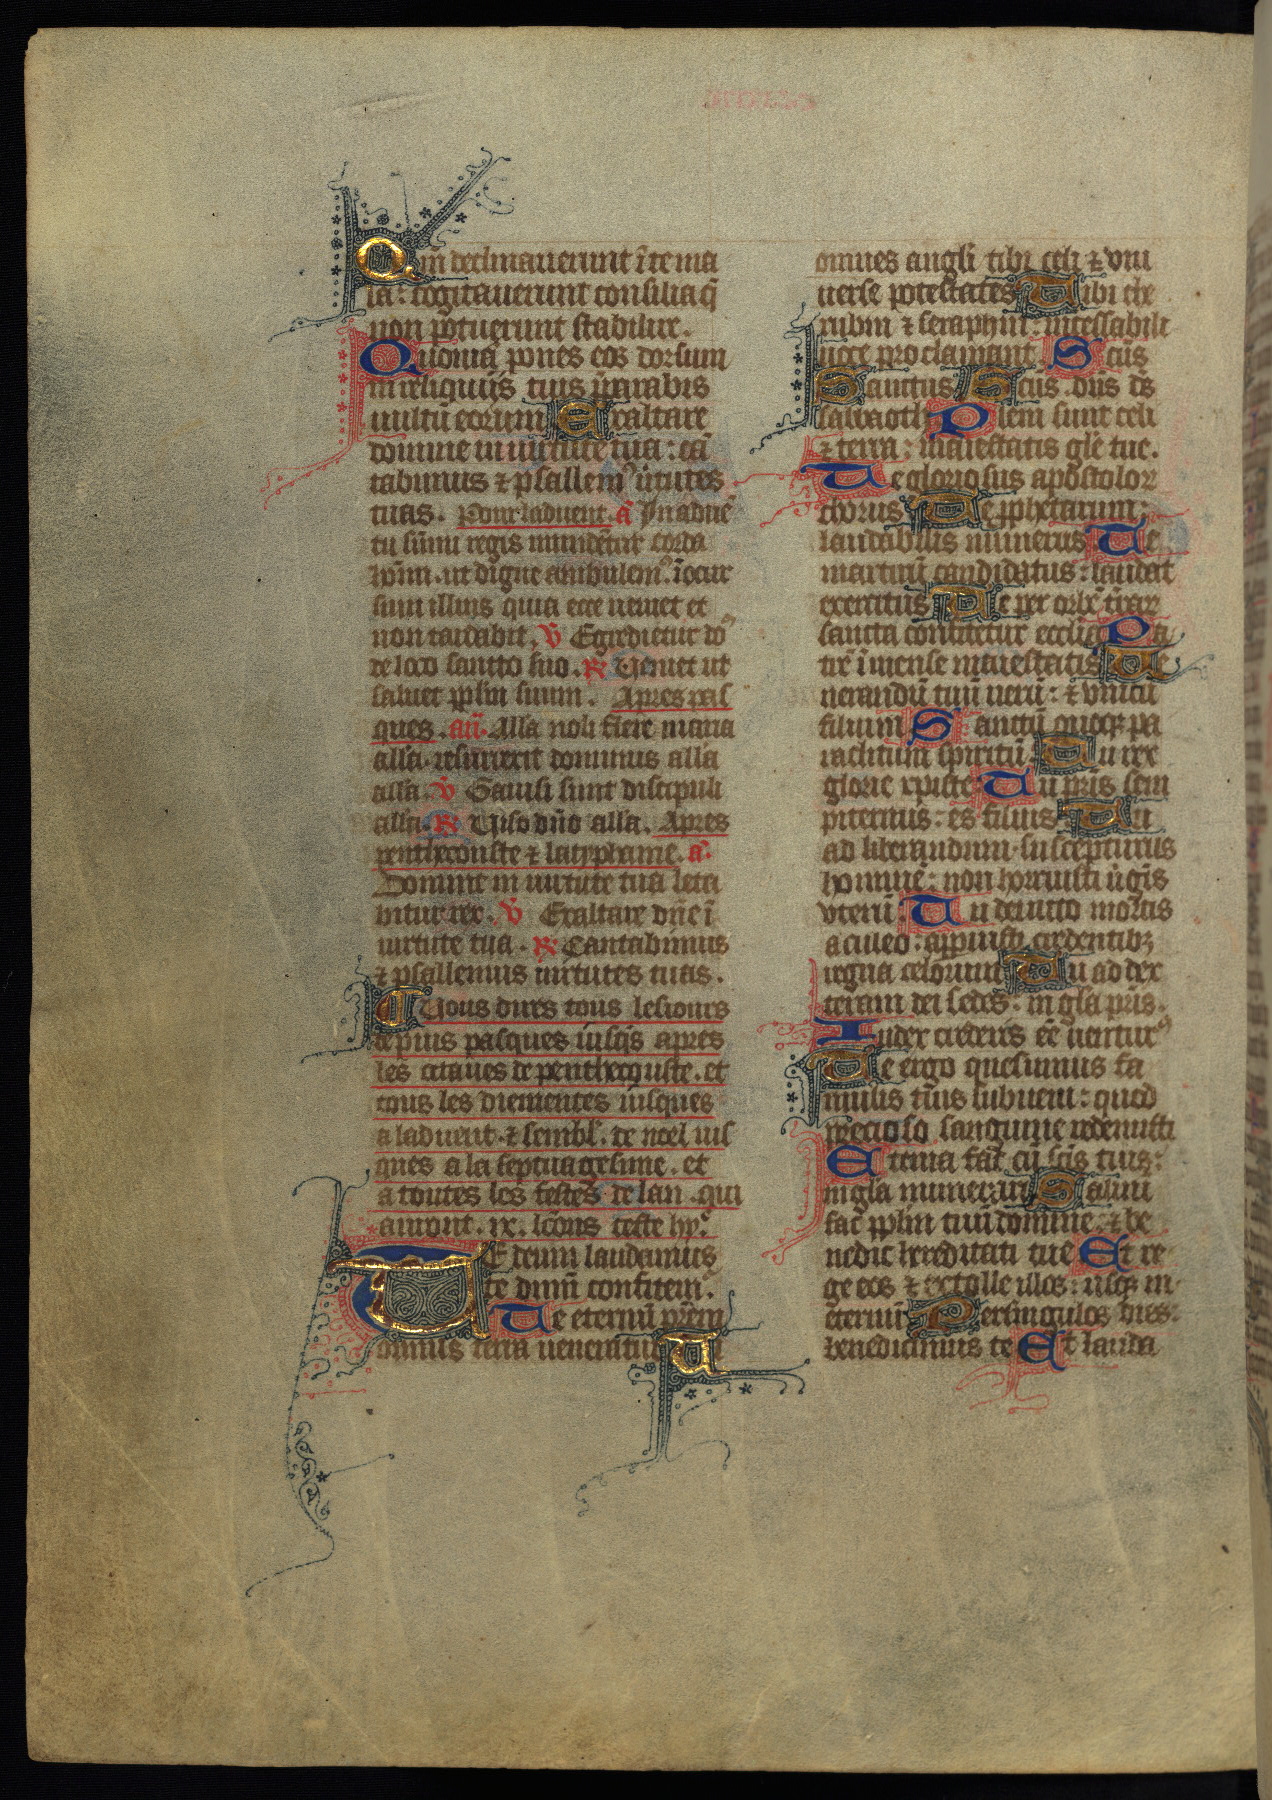 Qm̄ declinauerunt ī te ma
la: cogitauerunt consilia q̄
non potuerunt stabilire.
Quoniā pones eos dorsum
in reliquijs tuis p̄parabis
uultū eorum Exaltare
domine in uirtute tua: cā
tabimus ⁊ psallemꝰ ūtutes
tuas. Pour laduent. a͞ In aduē
tu sūmi regis mundētur corda
hoīm. ut digne ambulemꝰ ī occur
sum illius quia ecce ueniet et
non tardabit. V̄ Egredietur dōˢ
de loco sancto suo. ℟ Ueniet ut
saluet pplm suum. Apres pas
ques. añ. Alla noli flere maria
alla. resurrexit dominus alla
alla. V̄ Gauisi sunt discipuli
alla. ℟ Uiso dn̄o alla. Apres
penthecouste ⁊ latyphaine. a͞.
Domine in uirtute tua leta
bitur rex. V̄ Exaltare dn̄e ī
uirtute tua. ℟ Cantabimus
⁊ psallemus uirtutes tuas.
C Uous dires tous les iours
depuis pasques iusqs apres
les octaues de penthecouste. et
tous les diemences iusques
a laduent. ⁊ sembl. de noel ius
ques a la septuagesime. et
a toutes les festes de lan. qui
auront. ix. lc̄ons ceste hy.
TE deum laudamus
te dnm̄ confitemꝰ.
Te eternū pr̄em
omnis terra ueneratur Ti
omnes angli tibi celi ⁊ vni
uerse potestates Tibi che
rubin ⁊ seraphin: incessabili
uoce proclamant. Scūs
Sanctus Scūs. dn̄s d̄s
sabaoth Pleni sunt celi
⁊ terra: maiestatis gl̄e tue.
Te gloriosus apostolor
chorus Te pphetarum:
laudabilis numerus Te
martirū candidatus: laudat
exercitus Te per orbē t̄rar
sancta confitetur ecclīa Pa
trē īmense maiestatis Ue
nerandū tuū uerū: ⁊ vnicū
filium Sanctū quoqꝫ pa
raclitum spiritū. Tu rex
glorie xpiste. Tu pr̄is sem
piternus: es filius Tu
ad liberandum suscepturus
hominē: non horruisti ūgis
vterū. Tu deuicto mortis
aculeo: apperuisti credentibꝫ
regna celorum Tu ad dex
teram dei sedes: in gl̄a pr̄is.
Iudex crederis eē̄ uenturꝰ
Te ergo quesumus fa
mulis tuis subueni: quos
precioso sanguine redemisti
Eterna fac cū scīs tuis:
in gla numerari Saluū
fac pplm tuū domine. ⁊ be
nedic hereditati tue Et re
ge eos ⁊ extolle illos: usqꝫ in
eternū Per singulos dies:
benedicimus te Et lauda